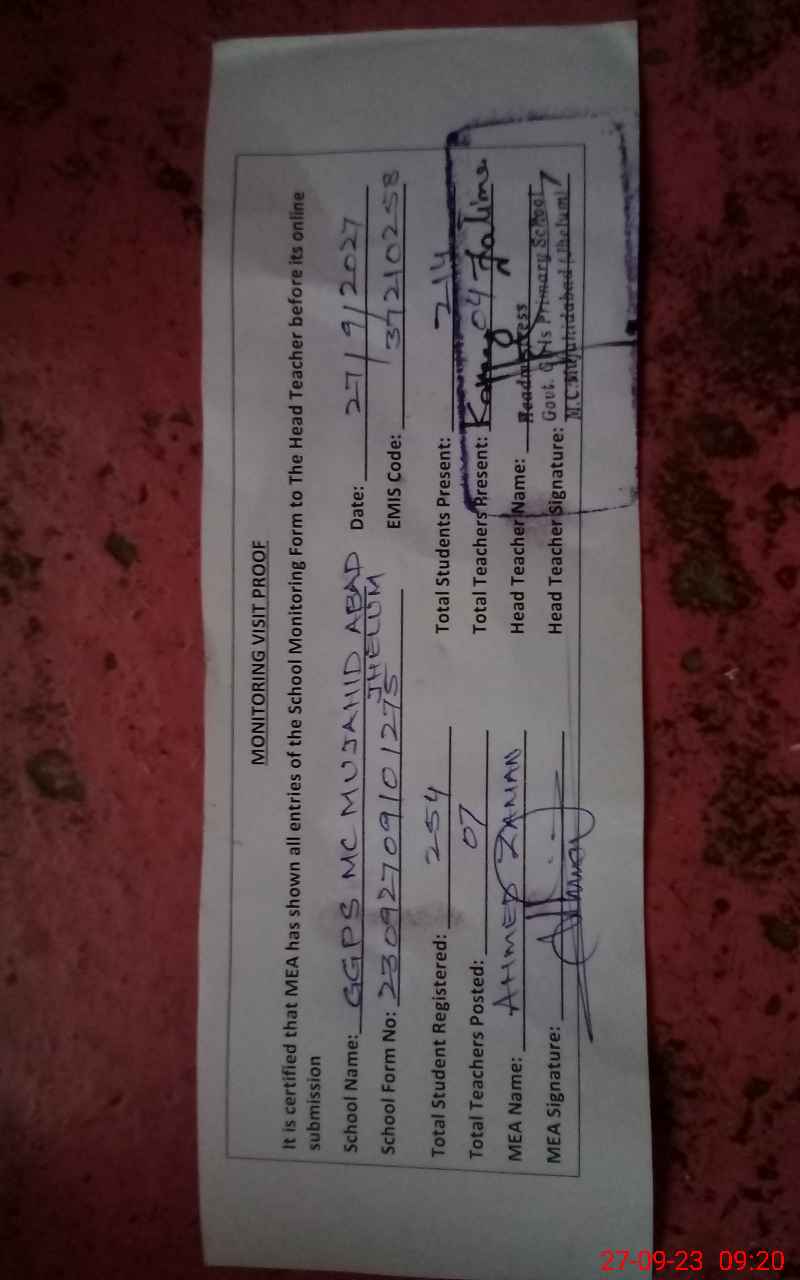 MONITORING VISIT PROOF
It is certified that MEA has shown all entries of the School Monitoring Form to The Head Teacher before its online
submission
School Name: GGPS MC MUJAHID ABAD JHELUM Date: 27/9/2027
School Form No: 23092709101275 EMIS Code: 37210258
Total Student Registered: 254 Total Students Present: 214
Total Teachers Posted: 07 Total Teachers Present: 04
MEA Name: AHMED ZAMAN Head Teacher Name: Fatima
Headmistress
MEA Signature: Head Teacher Signature:
Govt. Girls Primary School
M.C. Mujahidabad (Jhelum)
27-09-23 09:20